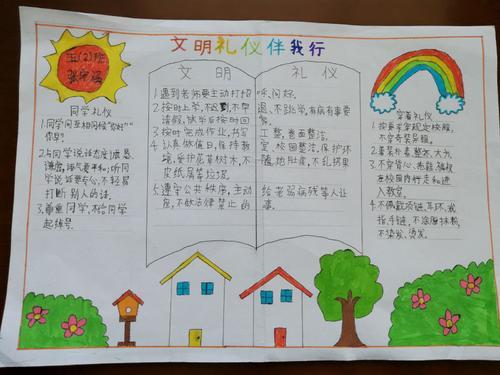 文明礼仪伴我行
五(2)班
同学礼仪
1.同学间互相问候“你好”“
你早”
2.与同学说话态度诚恳、
谦虚,语气要平和;听同
学说话要专心,不轻易
打断别人的话。
3.尊重同学,不给同学
起绰号.
文明 礼仪
1.遇到老师要主动打招呼、问好.
2.按时上学,不迟到、不早退、不逃学,有病有事要
请假,放学后按时回家。
3.按时完成作业,书写工整,卷面整洁.
4.认真做值日,保持教室、校园整洁,保护环
境,爱护花草树木,不随地吐痰,不乱扔果
皮纸屑等垃圾.
5.遵守公共秩序,主动给老弱病残等人让
座,不做法律禁止的事.
穿着礼仪
1.按要求穿规定校服,
不穿奇装异服.
2.着装朴素、整齐、大方.
3.不穿背心、拖鞋、
在校园内行走和进
入教室.
4.不佩戴项链、耳环、戒
指、手链,不涂脂抹粉,
不染发、烫发.